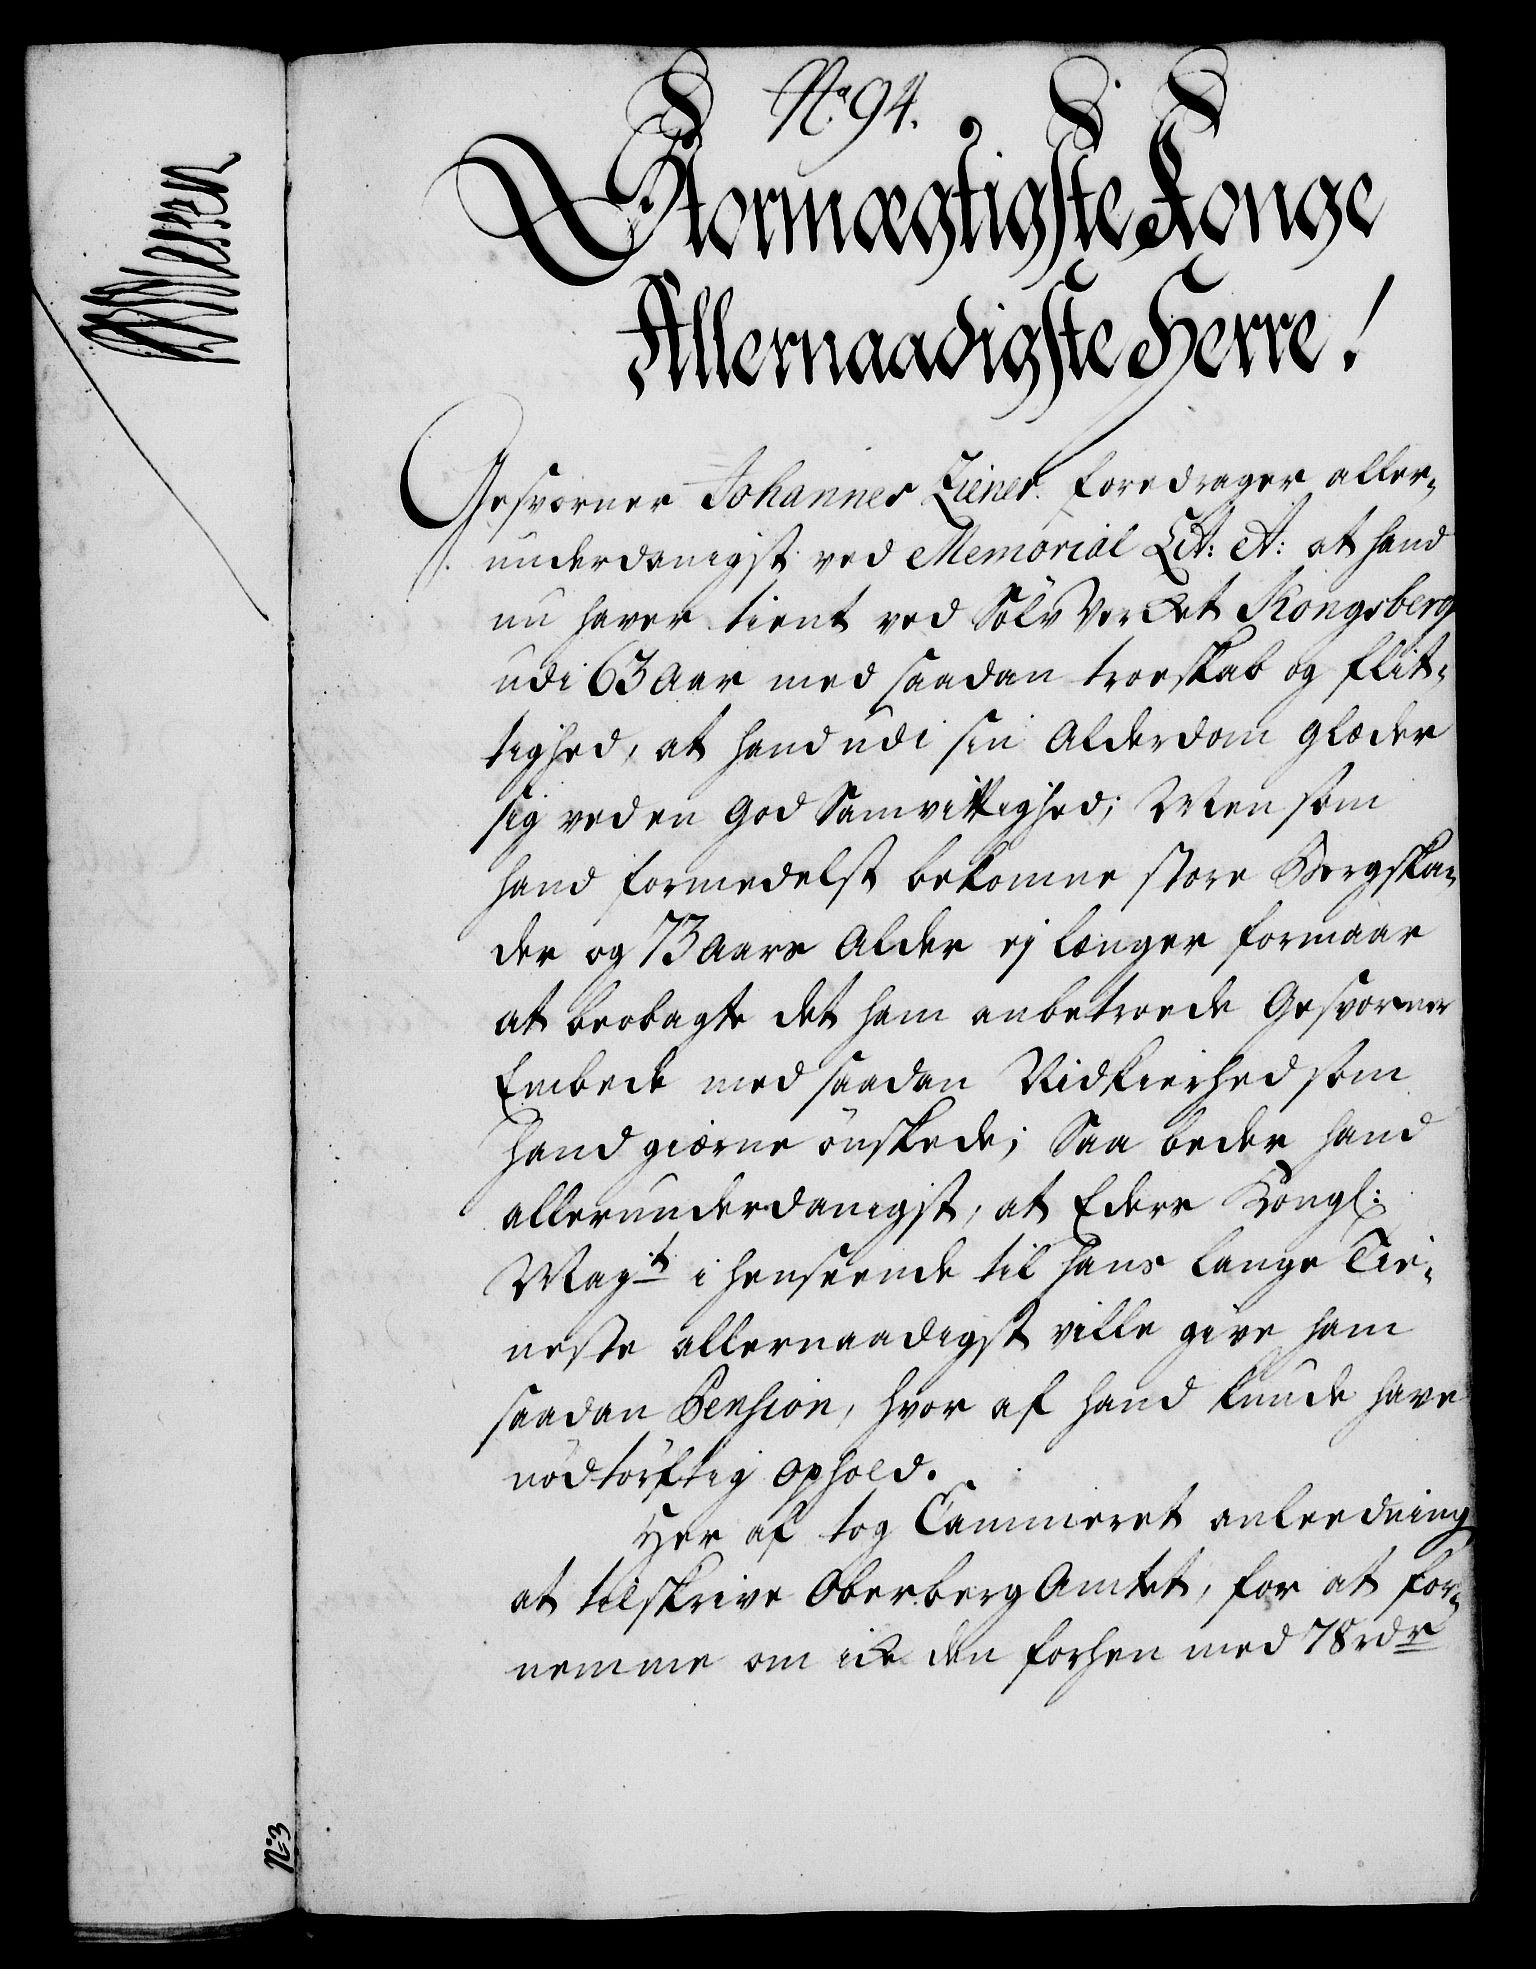 No 94.
Stormægtigste Konge
Allernaadigste Herre!
Gesvorner Johannes Ziener foredrager aller-
underdanigst ved Memorial Lit: A: at hand
nu haver tient ved Sölv Verket Kongsberg
udi 63 Aar med saadan troeskab og flit-
tighed, at hand udi sin Alderdom glæder
sig ved en god Samvittighed; Men som
hand formedelst bekomne store Bergska-
der og 73 Aars Alder ej længer formaar
at beobagte det ham anbetroede Gesvorner
Embede med saadan Nidkierhed som
hand giærne önskede; Saa beder hand
allerunderdanigst, at Eders Kongl:
Mayt i henseende til hans lange Tie-
neste allernaadigst ville give ham
saadan Pension, hvor af hand kunde have
nödtörftig ophold.
Her af tog Cammeret anleedning
at tilskrive Oberberg Amtet, for at for-
nemme om icke den forhen med 78 rdr
No 3